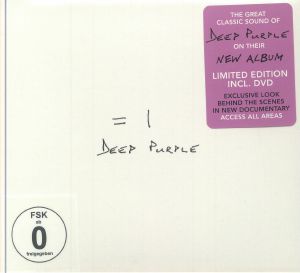 THE GREAT
CLASSIC SOUND OF
DEEP PURPLE
ON THEIR
NEW ALBUM
LIMITED EDITION
INCL. DVD
EXCLUSIVE LOOK
BEHIND THE SCENES
IN NEW DOCUMENTARY
ACCESS ALL AREAS
= 1
DEEP PURPLE
FSK
ab
0
freigegeben